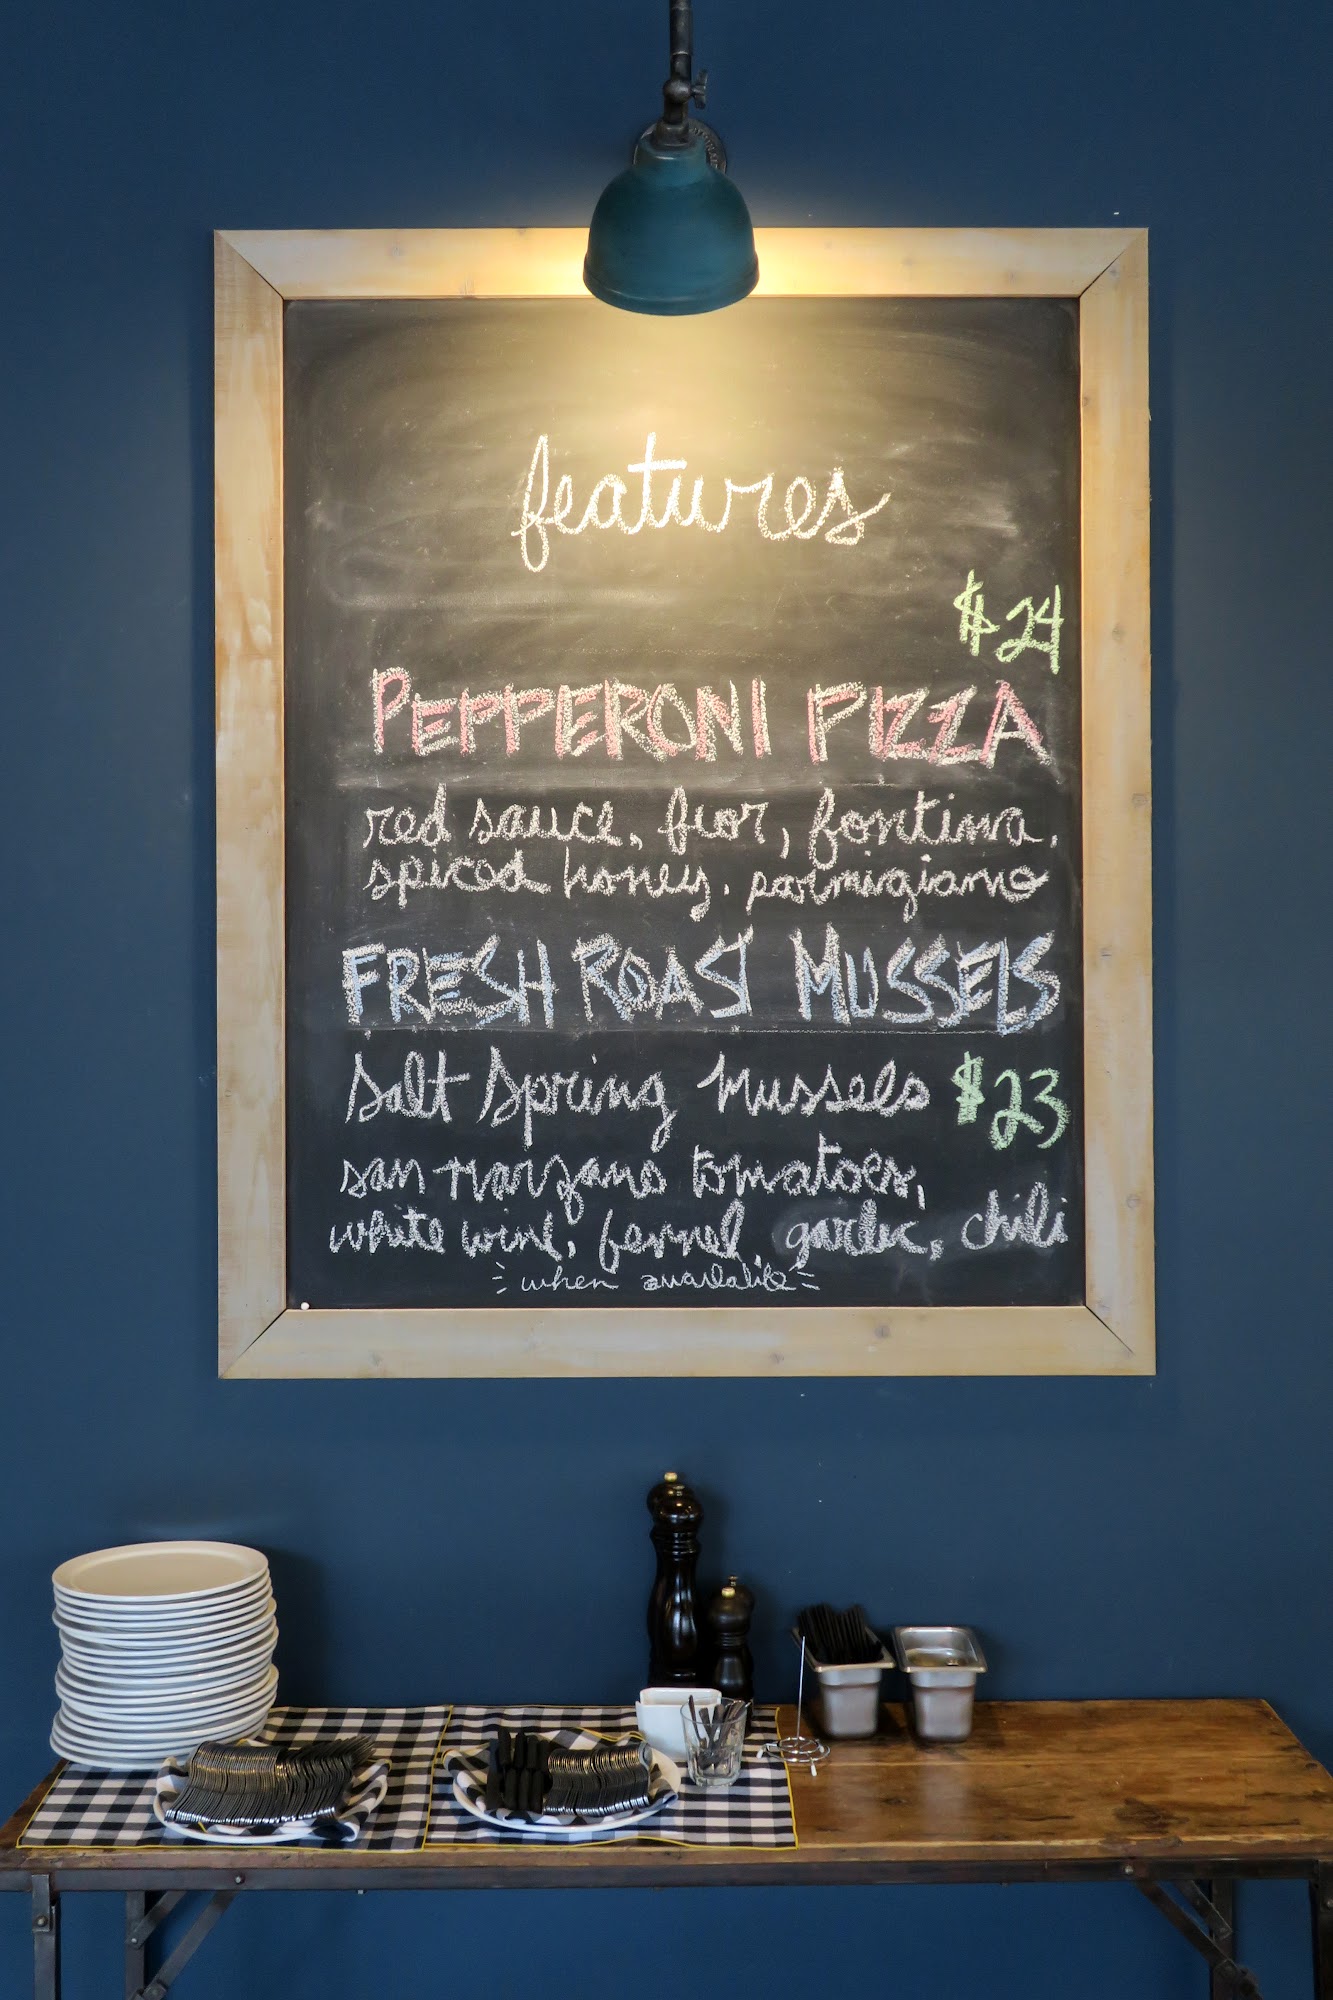 features
$24
PEPPERONI PIZZA
red sauce, fior, fontina,
spiced honey, parmigiano
FRESH ROAST MUSSELS
Salt Spring Mussels $23
san marzano tomatoes,
white wine, fennel, garlic, chili
when available